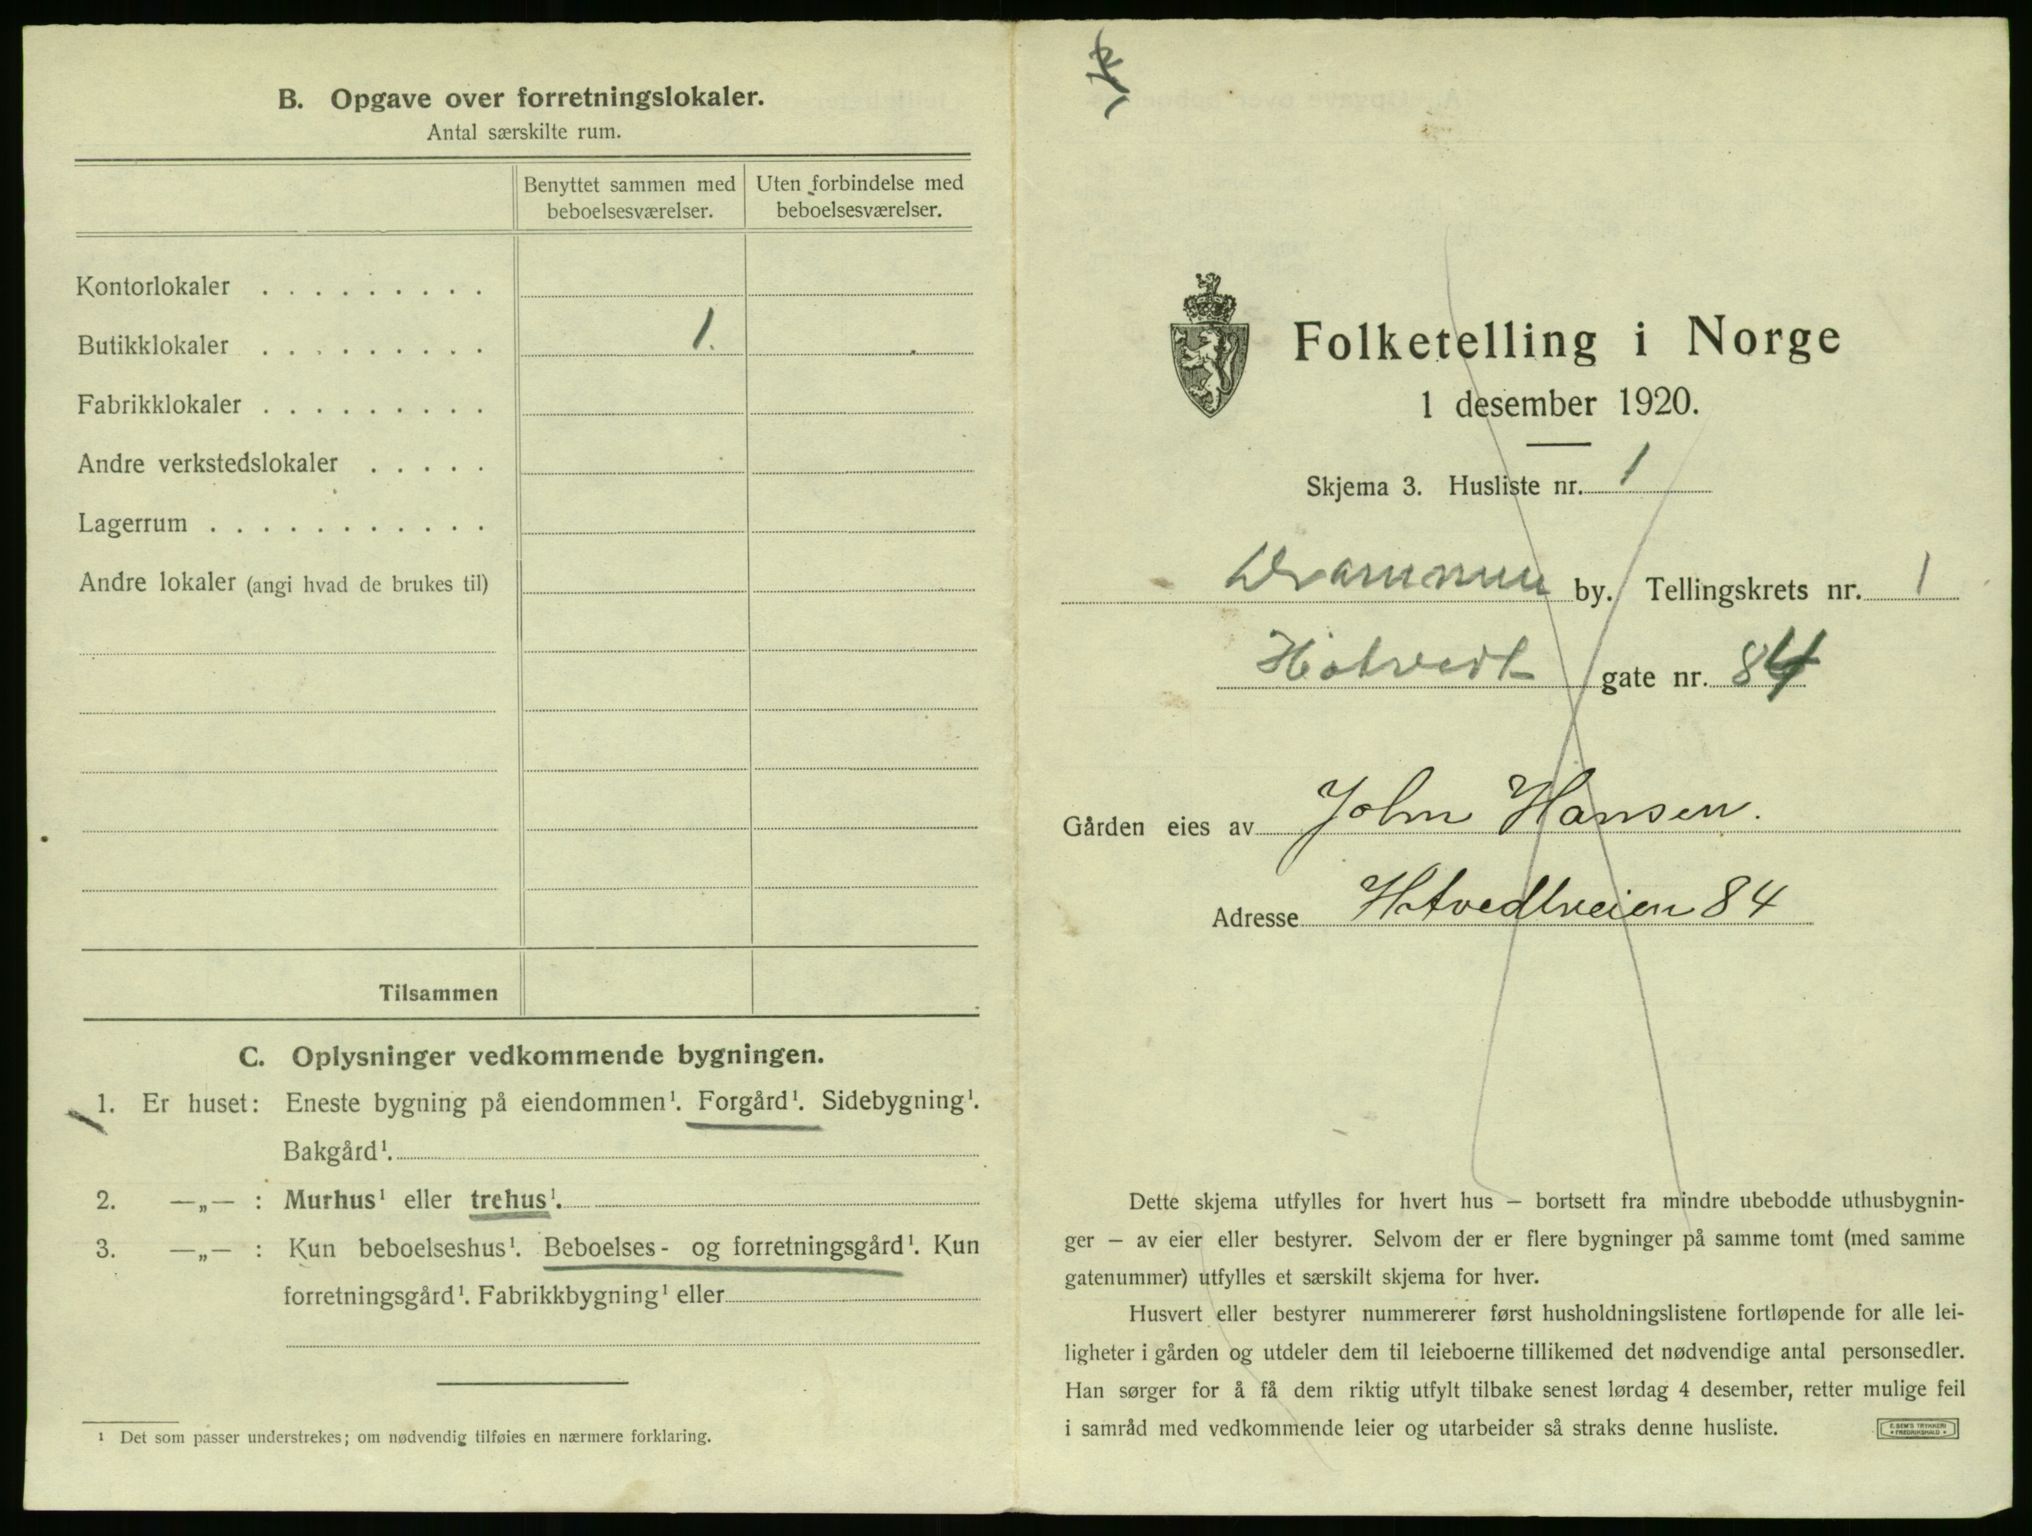 B. Opgave over forretningslokaler.
Antal særskilte rum.
Benyttet sammen med beboelsesværelser.
Uten forbindelse med beboelsesværelser.
Kontorlokaler . . . . . . . . .
Butikklokaler . . . . . . . . . 1.
Fabrikklokaler . . . . . . . . .
Andre verkstedslokaler . . . . .
Lagerrum . . . . . . . . . . .
Andre lokaler (angi hvad de brukes til)
Tilsammen
C. Oplysninger vedkommende bygningen.
1. Er huset: Eneste bygning på eiendommen¹. Forgård¹. Sidebygning¹.
Bakgård¹.
2. —„— : Murhus¹ eller trehus¹.
3. —„— : Kun beboelseshus¹. Beboelses- og forretningsgård¹. Kun
forretningsgård¹. Fabrikkbygning¹ eller
¹ Det som passer understrekes; om nødvendig tilføies en nærmere forklaring.
Folketelling i Norge
1 desember 1920.
Skjema 3. Husliste nr. 1
Drammen by. Tellingskrets nr. 1
Hotvedt gate nr. 84
Gården eies av John Hansen.
Adresse Hotvedtveien 84
Dette skjema utfylles for hvert hus — bortsett fra mindre ubebodde uthusbygnin-
ger — av eier eller bestyrer. Selvom der er flere bygninger på samme tomt (med samme
gatenummer) utfylles et særskilt skjema for hver.
Husvert eller bestyrer nummererer først husholdningslistene fortløpende for alle lei-
ligheter i gården og utdeler dem til leieboerne tillikemed det nødvendige antal personsedler.
Han sørger for å få dem riktig utfylt tilbake senest lørdag 4 desember, retter mulige feil
i samråd med vedkommende leier og utarbeider så straks denne husliste.
E. SEM'S TRYKKERI
• FREDRIKSHALD •